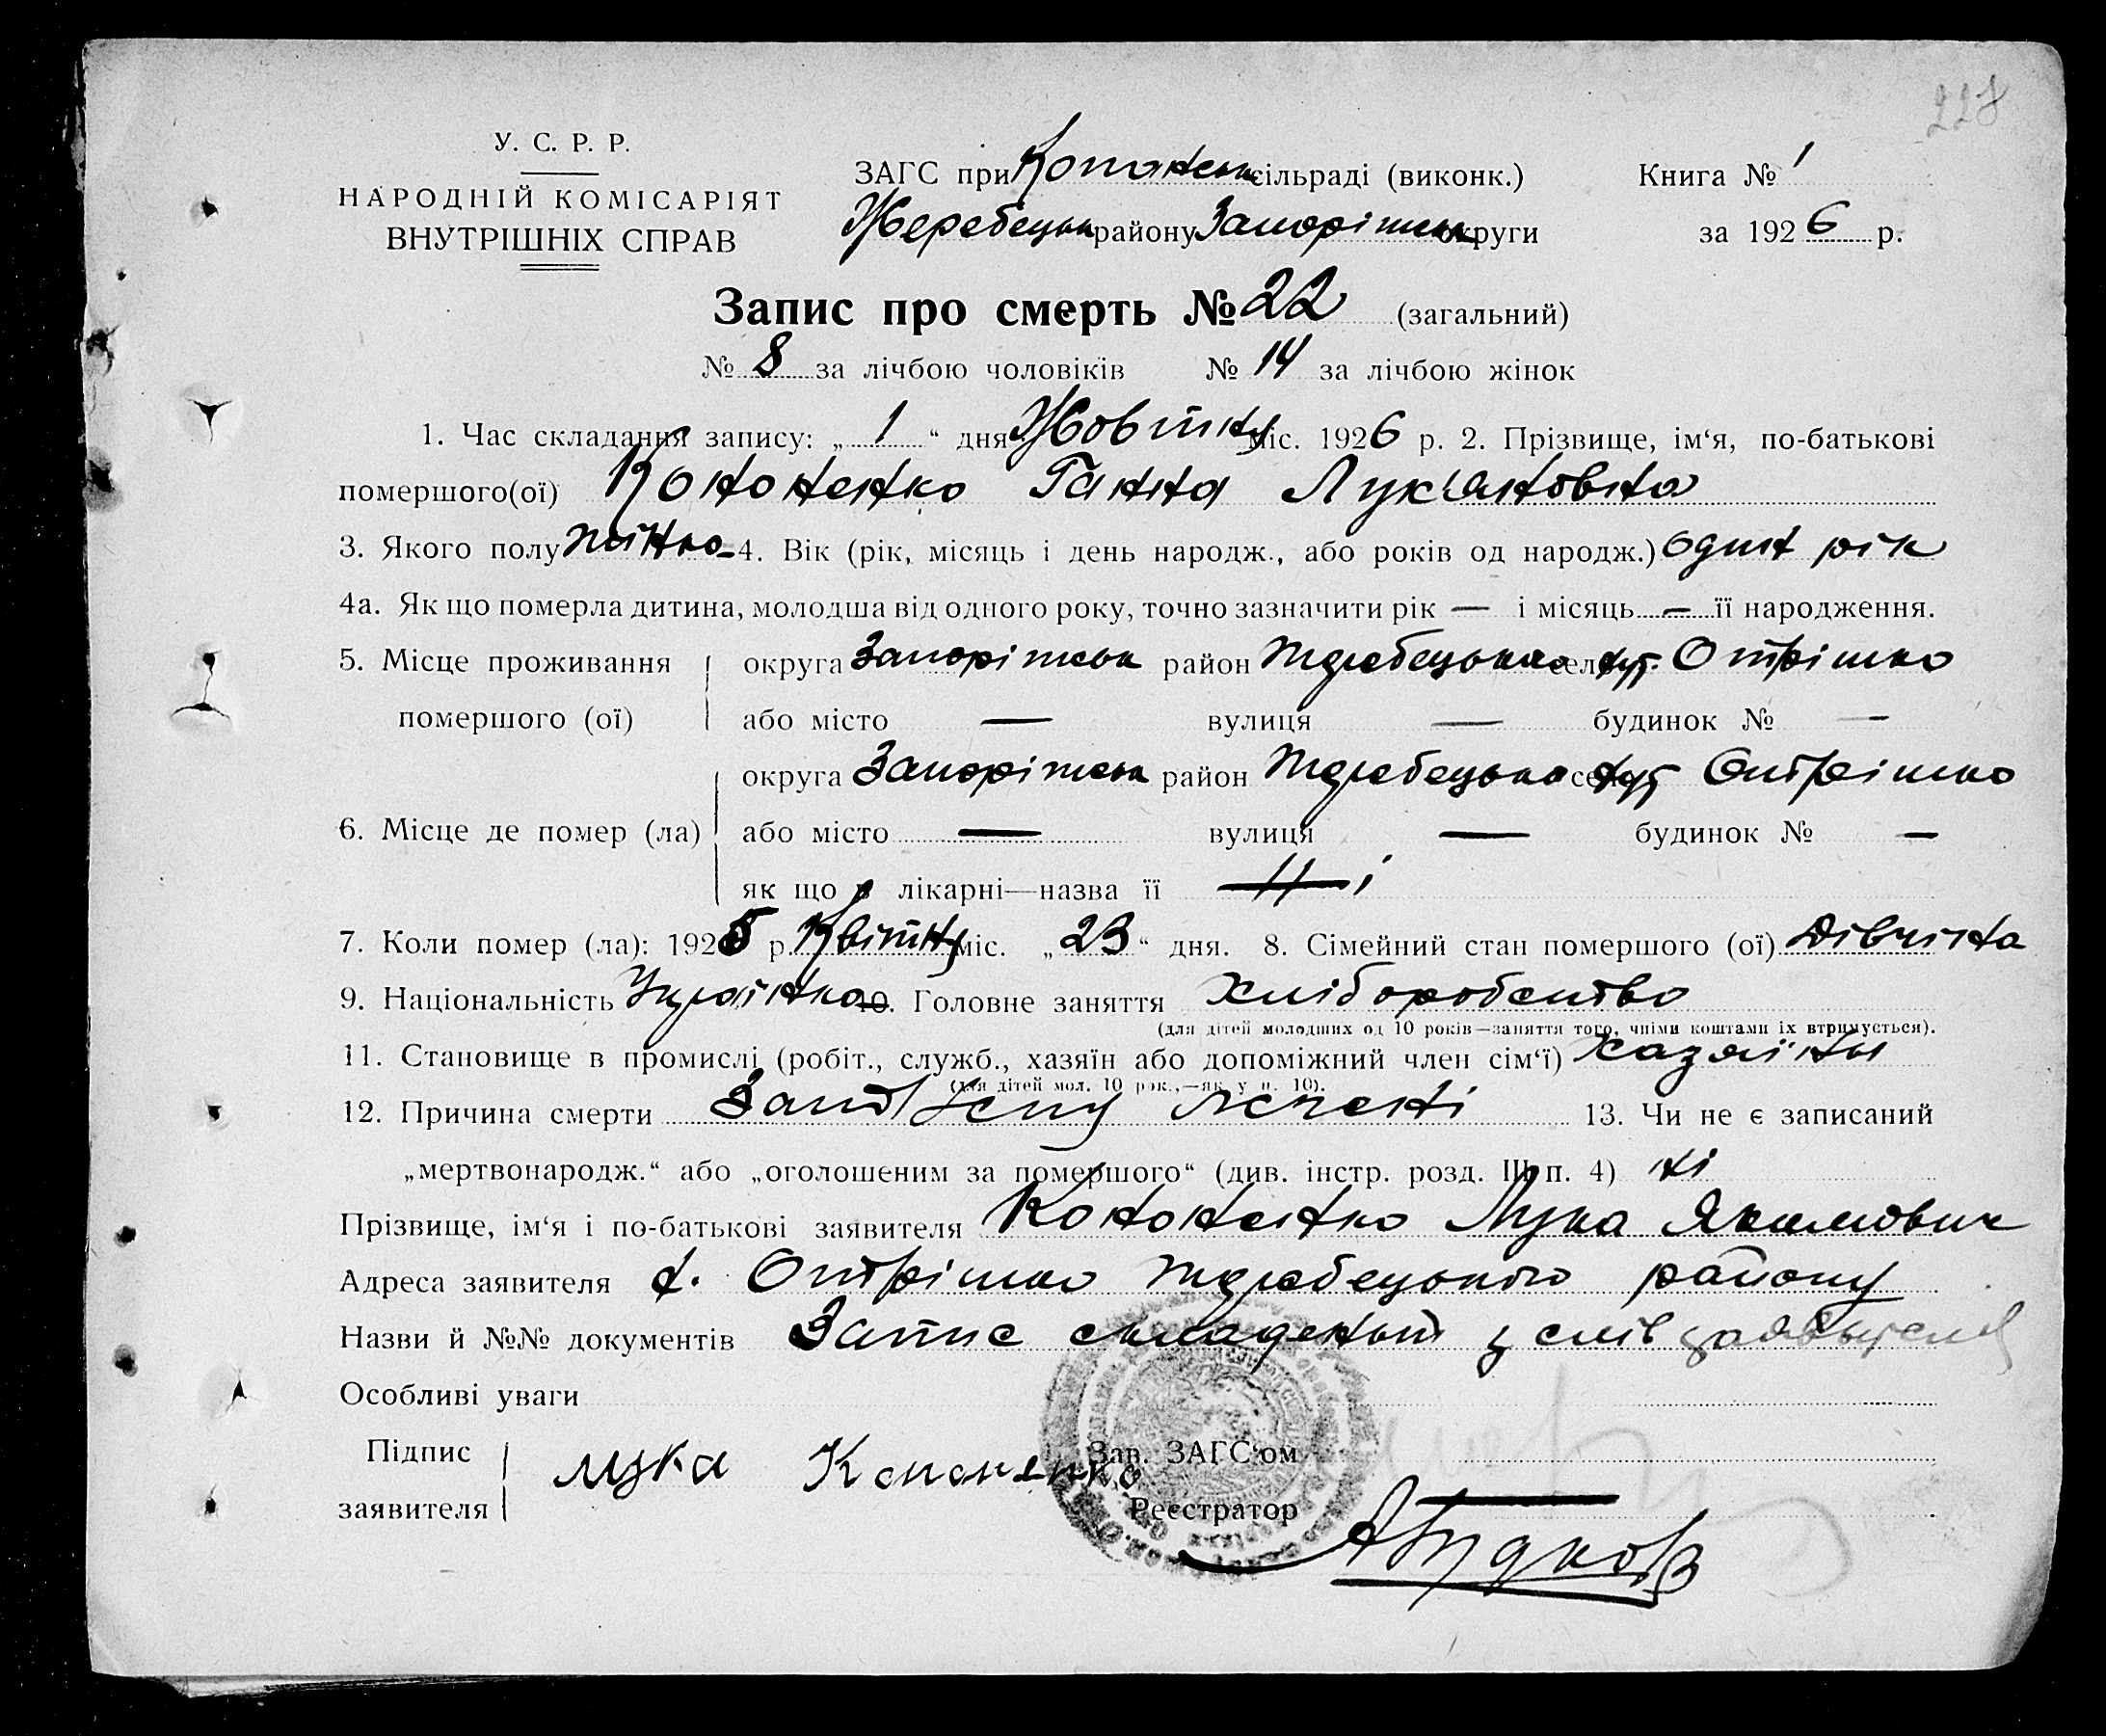 228
У. С. Р. Р.
НАРОДНІЙ КОМІСАРІЯТ
ВНУТРІШНІХ СПРАВ
ЗАГС при Копанськ сільраді (виконк.)
Жеребецьк району Запоріжськ округи
Книга № 1
за 1926 р.
Запис про смерть № 22 (загальний)
№ 8 за лічбою чоловіків № 14 за лічбою жінок
1. Час складання запису: „ 1 “ дня Жовтня міс. 1926 р. 2. Прізвище, ім‘я, по-батькові
помершого(ої) Кононенко Ганна Лук'яновна
3. Якого полу жіноч. 4. Вік (рік, місяць і день народж., або років од народж.) один рік
4а. Як що померла дитина, молодша від одного року, точно зазначити рік — і місяць — її народження.
5. Місце проживання помершого (ої)
округа Запоріжськ район Жеребецького село хут. Отрішко
або місто — вулиця — будинок № —
6. Місце де помер (ла)
округа Запоріжськ район Жеребецько село хут Отрішко
або місто — вулиця — будинок № —
як що в лікарні—назва її Ні
7. Коли помер (ла): 1926 р. Квітня міс. „ 23 “ дня. 8. Сімейний стан помершого (ої) Дівчина
9. Національність Українка 10. Головне заняття Хліборобство
(для дітей молодших од 10 років—заняття того, чиїми коштами їх втримується).
11. Становище в промислі (робіт., служб., хазяїн або допоміжний член сім‘ї) хазяїни
(для дітей мол. 10 рок.,—як у п. 10).
12. Причина смерти 13. Чи не є записаний
„мертвонародж.“ або „оголошеним за помершого“ (див. інстр. розд. III п. 4) ні
Прізвище, ім‘я і по-батькові заявителя Кононенко Лука Якимович
Адреса заявителя х. Отрішко Жеребецького району
Назви й №№ документів Запис складений з слів заявителя
Особливі уваги
Підпис заявителя Лука Кононенко
Зав. ЗАГС‘ом
Реєстратор